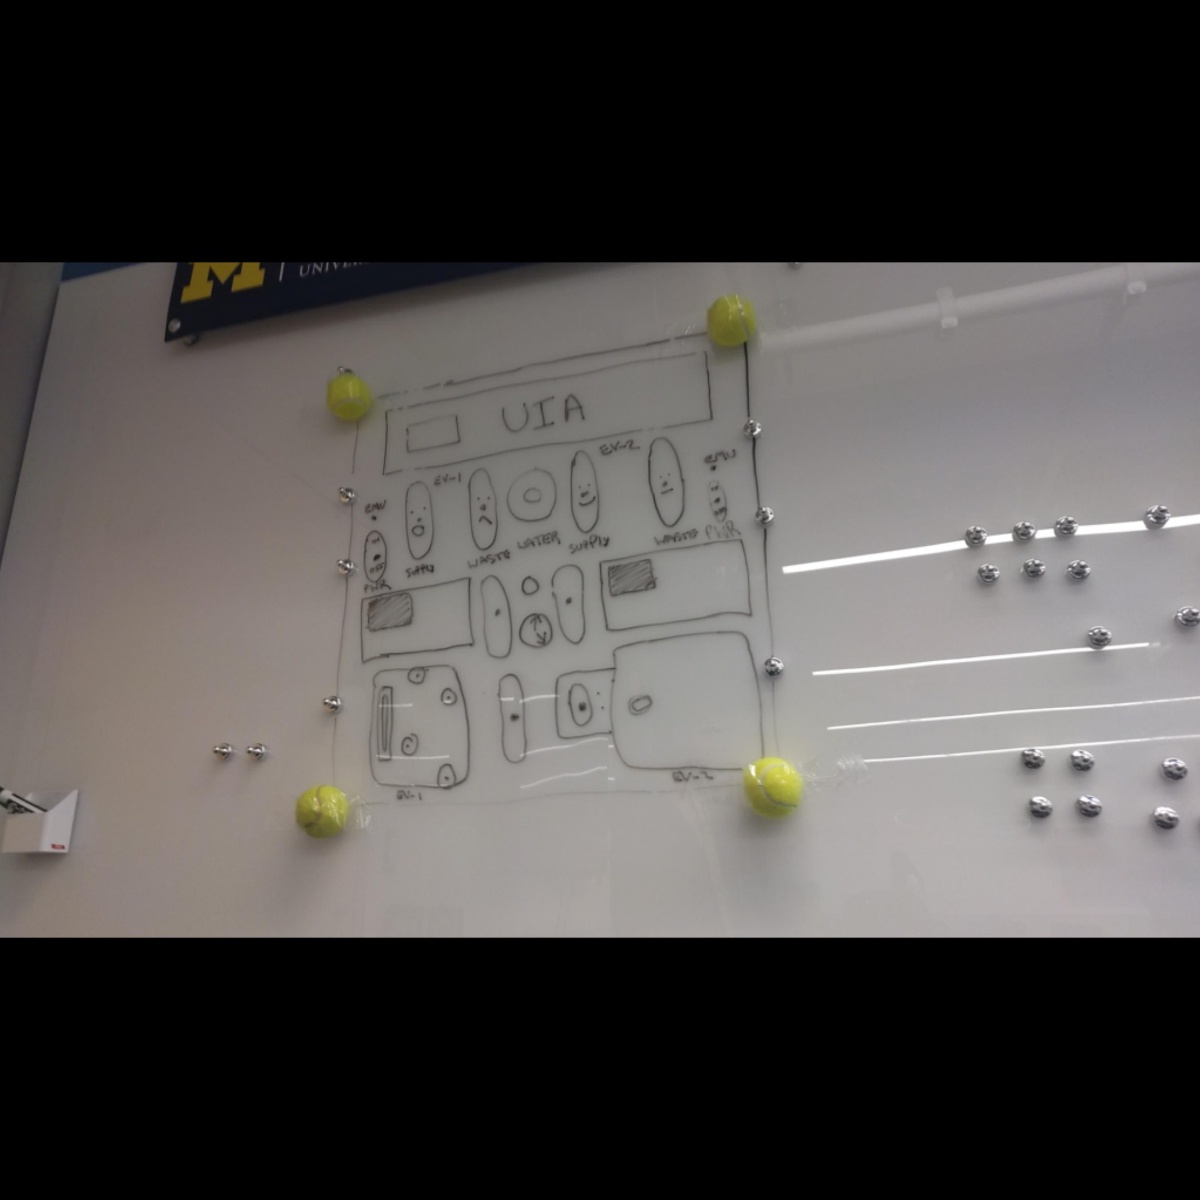 M | UNIVE
UIA
EV-1
EV-2
EMU
EMU
SUPPLY
WASTE
WATER
SUPPLY
WASTE
PWR
OFF
PWR
EV-1
EV-2